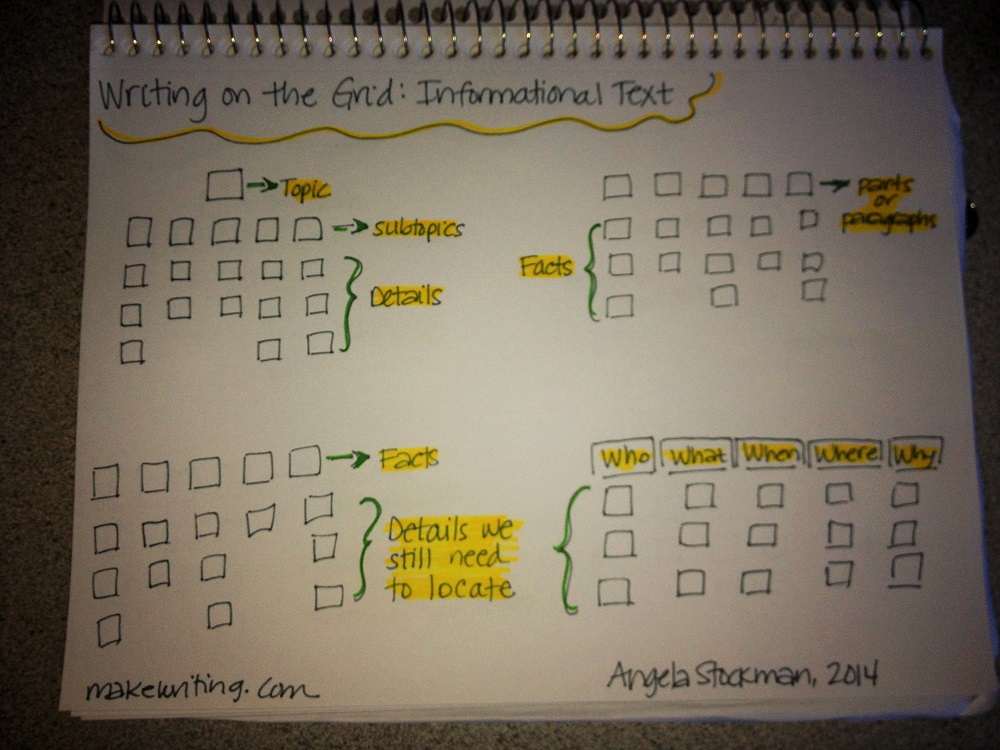 Writing on the Grid: Informational Text
Topic
subtopics
Details
parts
or
paragraphs
Facts
Facts
Details we
still need
to locate
Who What When Where Why
makewriting.com
Angela Stockman, 2014